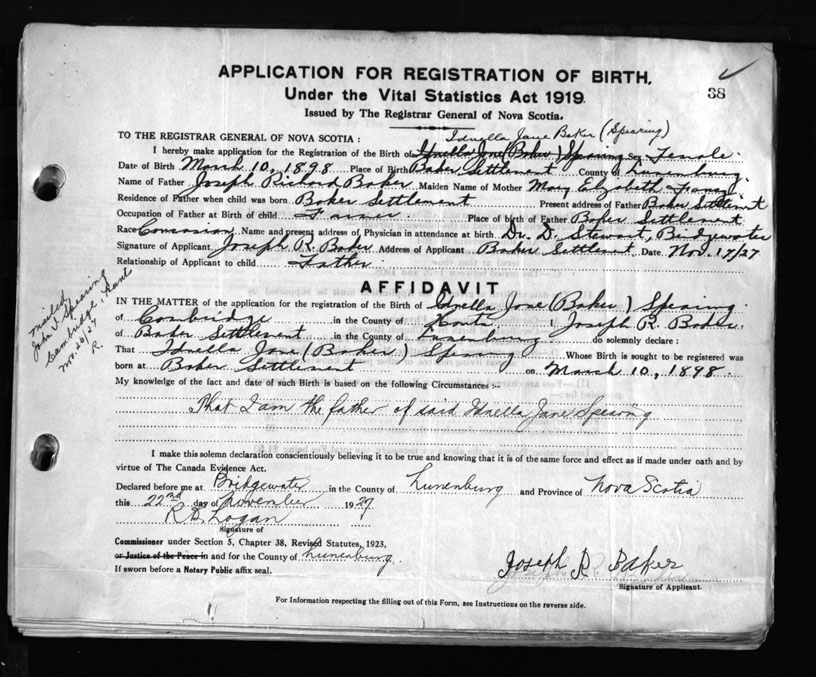 APPLICATION FOR REGISTRATION OF BIRTH.
38
Under the Vital Statistics Act 1919.
Issued by The Registrar General of Nova Scotia.
Idnella Jane Baker (Spearing)
TO THE REGISTRAR GENERAL OF NOVA SCOTIA :
I hereby make application for the Registration of the Birth of Idnella Jane (Baker) Spearing Sex Female
Date of Birth March 10, 1898 Place of Birth Baker Settlement County of Lunenburg.
Name of Father Joseph Richard Baker Maiden Name of Mother Mary Elizabeth
Residence of Father when child was born Baker Settlement Present address of Father Baker Settlement
Occupation of Father at Birth of child Farmer. Place of birth of Father Baker Settlement
Race Name and present address of Physician in attendance at birth. Dr. D. Stewart, Bridgewater
Signature of Applicant Joseph R. Baker Address of Applicant Baker Settlement Date Nov. 17/27
Relationship of Applicant to child Father.
AFFIDAVIT
IN THE MATTER of the application for the registration of the Birth of Idnella Jane (Baker) Spearing.
of Cambridge in the County of Hants I, Joseph R. Baker.
of Baker Settlement in the County of Lunenburg do solemnly declare :
That Idnella Jane (Baker) Spearing Whose Birth is sought to be registered was
born at Baker Settlement on March 10, 1898.
My knowledge of the fact and date of such Birth is based on the following Circumstances :-
That I am the father of said Idnella Jane Spearing
I make this solemn declaration conscientiously believing it to be true and knowing that it is of the same force and effect as if made under oath and by
virtue of The Canada Evidence Act.
Declared before me at Bridgewater in the County of Lunenburg and Province of Nova Scotia
this 22nd day of November 1927.
R.D. Logan
Signature of
Commissioner under Section 5, Chapter 38, Revised Statutes, 1923,
or Justice of the Peace in and for the County of Lunenburg.
If sworn before a Notary Public affix seal.
Joseph R Baker
Signature of Applicant.
For Information respecting the filling out of this Form, see Instructions on the reverse side.
mailed
John I. Spearing
Cambridge, Hants
26/27
R.